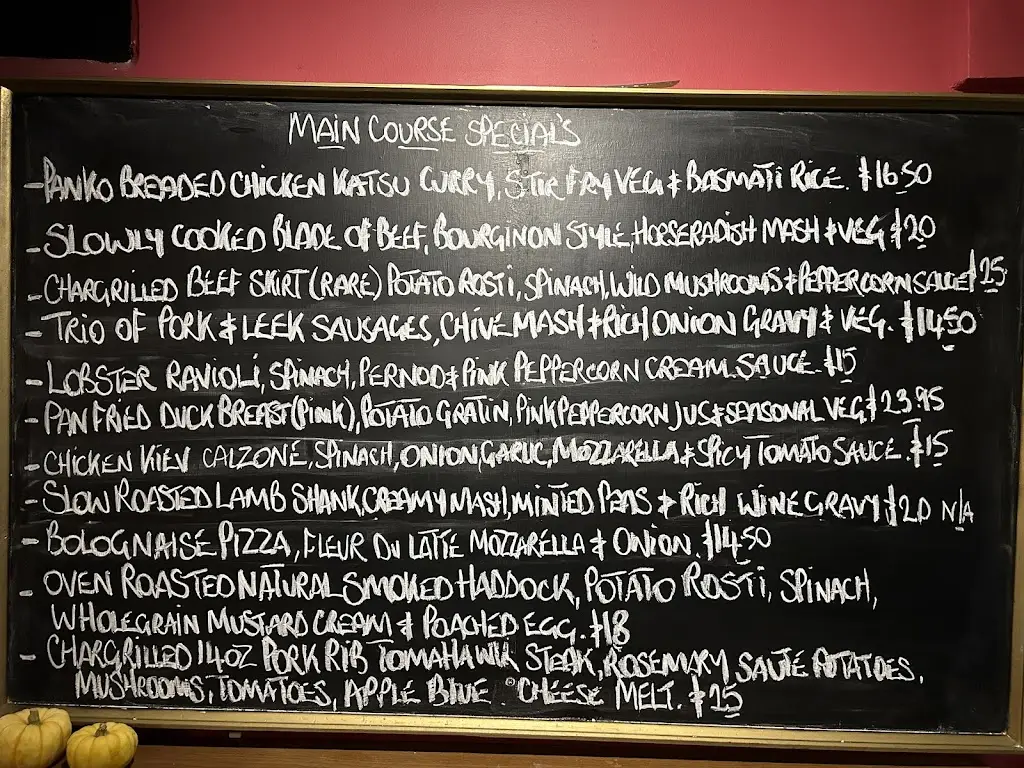 MAIN COURSE SPECIAL'S
- PANKO BREADED CHICKEN KATSU CURRY, STIR FRY VEG & BASMATI RICE. £16.50
- SLOWLY COOKED BLADE OF BEEF, BOURGINON STYLE, HORSERADISH MASH & VEG £20
- CHARGRILLED BEEF SKIRT (RARE) POTATO ROSTI, SPINACH, WILD MUSHROOMS & PEPPERCORN SAUCE £25
- TRIO OF PORK & LEEK SAUSAGES, CHIVE MASH & RICH ONION GRAVY & VEG. £14.50
- LOBSTER RAVIOLI, SPINACH, PERNOD & PINK PEPPERCORN CREAM SAUCE £15
- PAN FRIED DUCK BREAST (PINK), POTATO GRATIN, PINK PEPPERCORN JUS & SEASONAL VEG £23.95
- CHICKEN KIEV CALZONE, SPINACH, ONION, GARLIC, MOZZARELLA & SPICY TOMATO SAUCE. £15
- SLOW ROASTED LAMB SHANK, CREAMY MASH, MINTED PEAS & RICH WINE GRAVY £20 N/A
- BOLOGNAISE PIZZA, FLEUR DU LATTE MOZZARELLA & ONION. £14.50
- OVEN ROASTED NATURAL SMOKED HADDOCK, POTATO ROSTI, SPINACH,
WHOLEGRAIN MUSTARD CREAM & POACHED EGG. £18
- CHARGRILLED 14OZ PORK RIB TOMAHAWK STEAK, ROSEMARY SAUTÉ POTATOES,
MUSHROOMS, TOMATOES, APPLE BLUE CHEESE MELT. £25